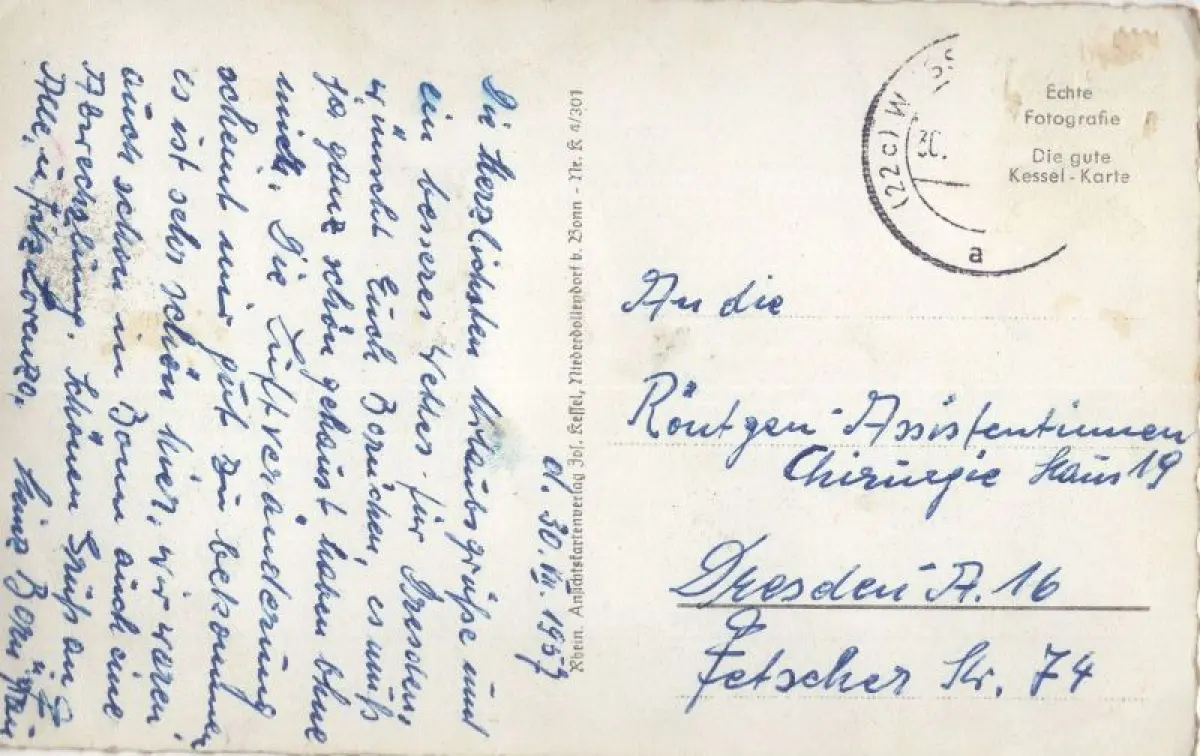 d. 30. VII. 1957
Die herzlichsten Urlaubsgrüße und
ein besseres Wetter für Dresden,
wünscht Euch Bornchen, es muß
ja ganz schön gehaust haben ohne
mich. Die Luftveränderung
scheint mir gut zu bekommen
es ist sehr schön hier, wir waren
auch schon in Bonn auch eine
Abwechslung. Schönen Gruß an
Alle, u. Fritz Lorenzo. Heinz Born u. Frau
Rhein. Ansichtskartenverlag Jos. Kessel, Niederdollendorf b. Bonn - Nr. K 4/301
(22c) W
30.
a
Echte
Fotografie
Die gute
Kessel-Karte
An die
Röntgen-Assistentinnen
Chirurgie Haus 19
Dresden-A. 16
Fetscher Str. 74